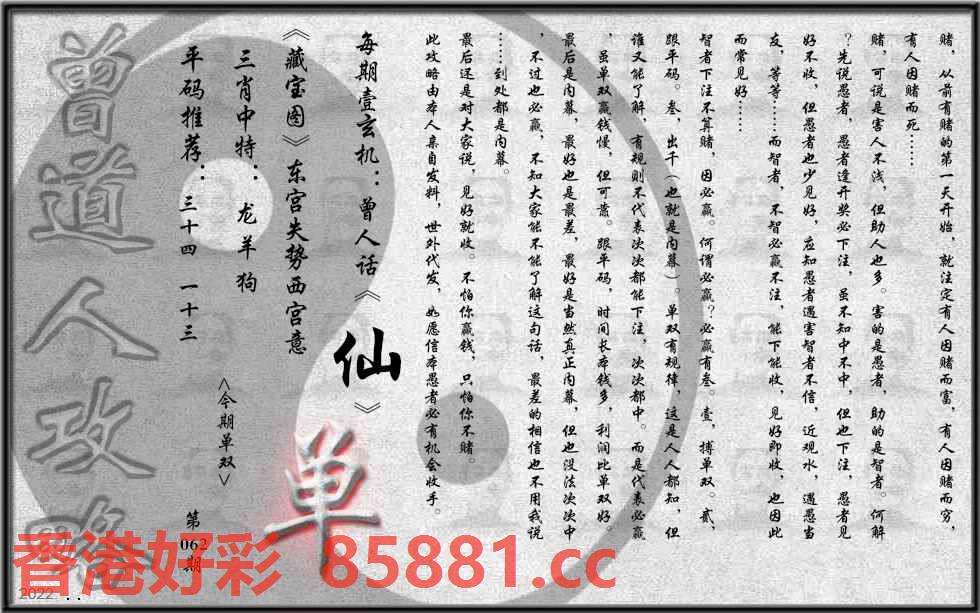 赌，从前有赌的第一天开始，就注定有人因赌而富，有人因赌而穷，
有人因赌而死……
赌，可说是害人不浅，但助人也多。害的是愚者，助的是智者。何解
？先说愚者，愚者逢开奖必下注，虽不知中不中，但也下注，愚者见
好不收，但愚者也少见好，应知愚者遇害智者不信，近观水，遇愚当
友，等等……而智者，不智必赢不注，能下能收，见好即收，也因此
而常见好……
智者下注不算赌，因必赢。何谓必赢？必赢有叁。壹，搏单双。贰，
跟平码。叁，出千（也就是内幕）。单双有规律，这是人人都知，但
谁又能了解，有规则不代表次次都能下注，次次都中。而是代表必赢
，虽单双赢钱慢，但可靠。跟平码，时间长本钱多，利润比单双好。
最后是内幕，最好也是最差，最好是当然真正内幕，但也没法次次中
，不过也必赢，不知大家能不能了解这句话，最差的相信也不用我说
……到处都是内幕。
最后还是对大家说，见好就收。不怕你赢钱，只怕你不赌。
此攻略由本人亲自发料，世外代发，如愿信本愚者必有机会收手。
每期壹玄机：曾人话《仙》
《藏宝图》东宫失势西宫意
三肖中特：龙羊狗
平码推荐：三十四 一十三
<今期单双>
单
第062期
曾道人攻略
香港好彩 85881.cc
2022